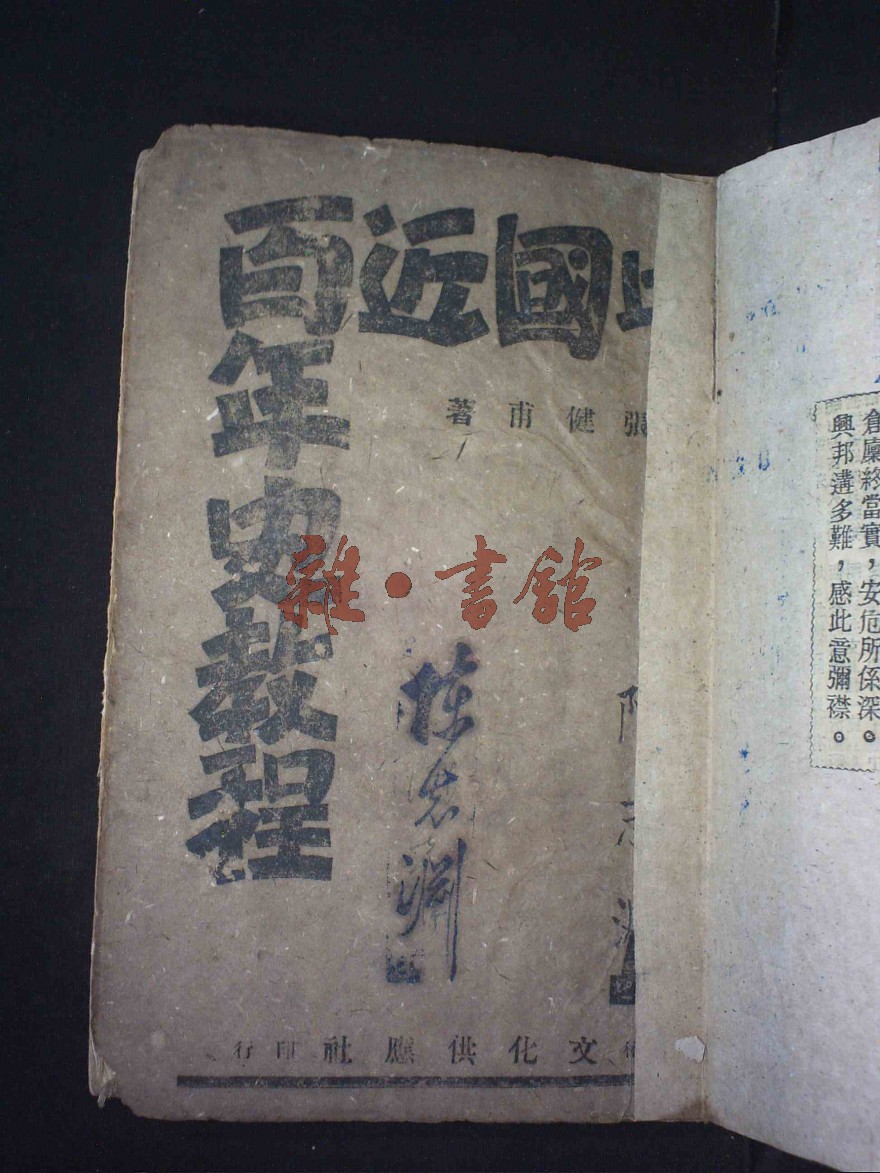 國近百年史教程
張健甫著
雜·書館
陳志淵
文化供應社印行
倉廩終當實，安危所係深。
興邦遘多難，感此意彌襟。